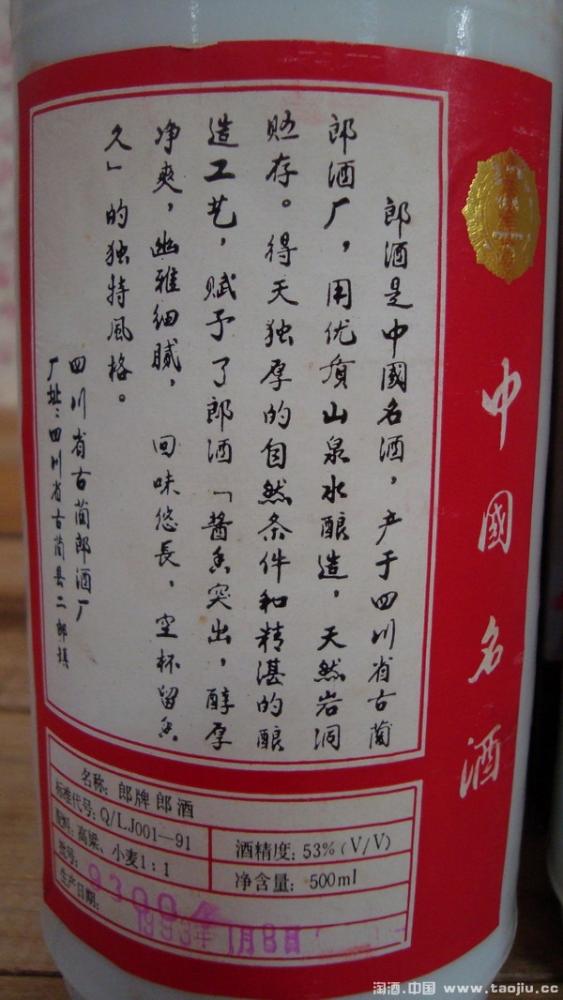 郎酒是中國名酒，产于四川省古蔺
郎酒厂，用优质山泉水酿造，天然岩洞
贮存。得天独厚的自然条件和精湛的酿
造工艺，赋予了郎酒「酱香突出，醇厚
净爽，幽雅细腻，回味悠長，空杯留香
久」的独特風格。
四川省古蔺郎酒厂
厂址：四川省古蔺县二郎滩
中國名酒
名称：郎牌郎酒
标准代号：Q/LJ001—91
配料：高粱、小麦1：1
批号：
生产日期：
1993年1月8日
酒精度：53%（V/V）
净含量：500ml
淘酒.中国 www.taojiu.cc